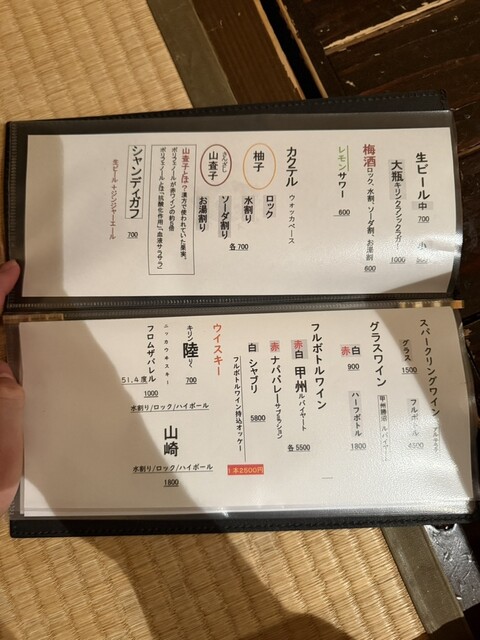 生ビール 中 700 小
大瓶 キリンクラシックラガー 1000
梅酒 ロック、水割、ソーダ割、お湯割 600
レモンサワー 600
カクテル ウォッカベース
柚子
さんざし
山査子
ロック
水割り
ソーダ割り
お湯割り
各700
山査子とは?漢方で使われていた果実。
ポリフェノールが赤ワインの約5倍
ポリフェノールとは「抗酸化作用」、「血液サラサラ」
シャンディガフ 700
生ビール+ジンジャーエール
スパークリングワイン
グラス 1500 フルボトル 4500
グラスワイン 甲州勝沼 ルバイヤート
赤白 900 ハーフボトル 1800
フルボトルワイン
赤白 甲州 ルバイヤート 各5500
赤 ナパバレー
白 シャブリ 5800
フルボトルワイン持込オッケー 1本2500円
ウイスキー
キリン 陸 りく 700
水割り/ロック/ハイボール
ニッカウヰスキー
フロムザバレル
51.4度 1000
山崎
水割り/ロック/ハイボール
1800